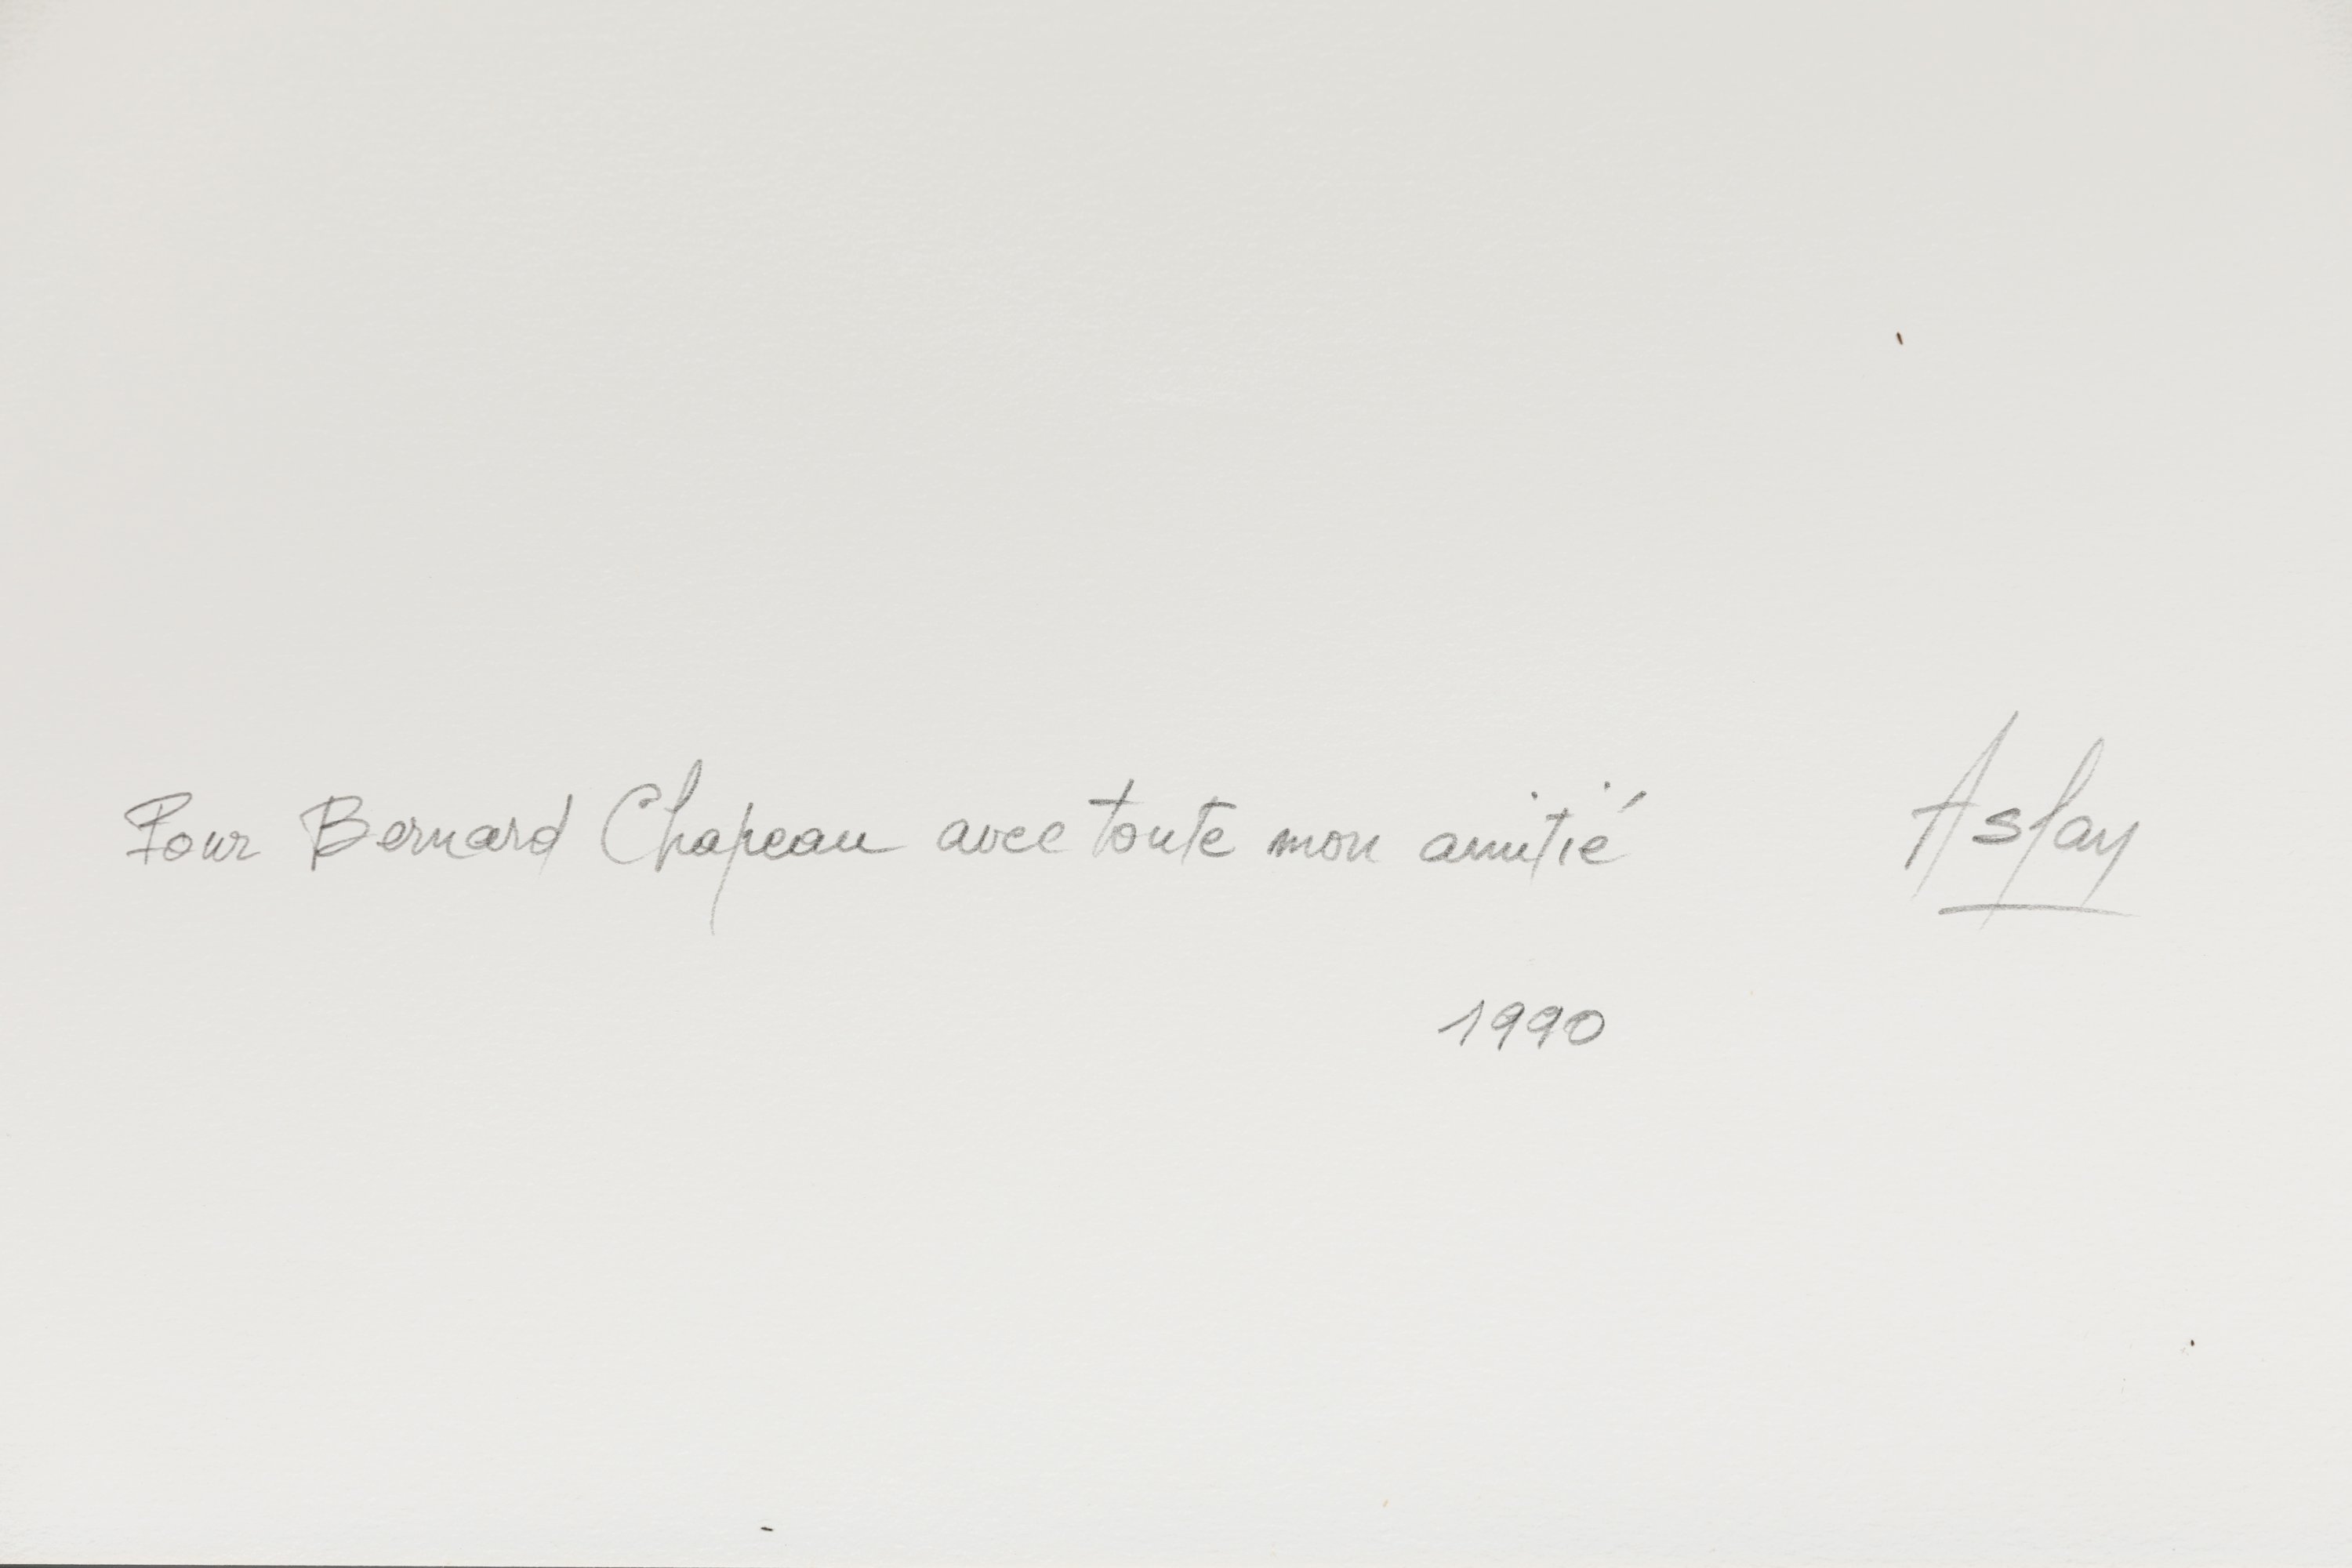 Pour Bernard Chapeau avec toute mon amitié Aslay
1990